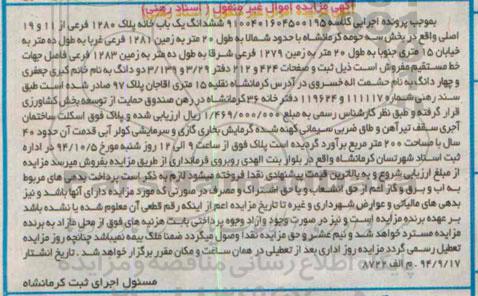 آگهی مزایده اموال غیر منقول ( اسناد رهنی)
بموجب پرونده اجرایی کلاسه ۹۱۰۰۴۰۰۱۶۰۴۵۰۰۱۹۵ ششدانگ یک باب خانه پلاک ۱۲۸۰ فرعی از ۱۱ و ۱۹
اصلی واقع در بخش سه حومه کرمانشاه با حدود شمالا به طول ۲۰ متر به زمین ۱۲۸۱ فرعی غربا به طول ده متر به
خیابان ۱۵ متری جنوبا به طول ۲۰ متر به زمین ۱۲۷۹ فرعی شرقا به طول ده متر به زمین ۱۲۸۳ فرعی فاصل جهات
خط مستقیم مفروش است ذیل ثبت و صفحات ۴۲۴ و ۲۱۲ دفتر ۳/۲۹ و ۳/۱۳۹ دو دانگ به نام خانم کبری جعفری
و چهار دانگ به نام حشمت اله خسروی در آدرس کرمانشاه نقلیه ۱۵ متری اقاجان پلاک ۹۷ صادر شده است طبق
سند رهنی شماره ۱۱۱۱۱۷ و ۱۱۹۶۲۴ دفتر خانه ۳۶ کرمانشاه در رهن صندوق حمایت از توسعه بخش کشاورزی
قرار گرفته و طبق نظر کارشناس رسمی به مبلغ ۱/۴۶۹/۰۰۰/۰۰۰ ریال ارزیابی شده و پلاک فوق اسکلت ساختمان
آجری سقف تیرآهن و طاق ضربی سیمانی کهنه شده گرمایش بخاری گازی و سرمایشی کولر آبی قدمت آن حدود ۴۰
سال با مساحت ۲۰۰ متر مربع برآورد گردیده است پلاک فوق از ساعت ۹ الی ۱۲ روز شنبه مورخ ۹۴/۱۰/۵ در اداره
ثبت اسناد شهرستان کرمانشاه واقع در بلوار بنت الهدی روبروی فرمانداری از طریق مزایده بفروش میرسد مزایده
از مبلغ ارزیابی شروع و به بالاترین قیمت پیشنهادی نقدا فروخته میشود لازم به ذکر است پرداخت بدهی های مربوط
به آب و برق و گاز اعم از حق انشعاب و یا حق اشتراک و مصرف در صورتی که مورد مزایده دارای آنها باشد و نیز
بدهی های مالیاتی و عوارض شهرداری و غیره تا تاریخ مزایده اعم از اینکه رقم قطعی آن معلوم شده یا نشده باشد
بر عهده برنده مزایده است و نیز در صورت وجود مازاد وجوه پرداختی بابت هزینه های فوق از محل مازاد به برنده
مزایده مسترد خواهد شد و نیم عشر و حق مزایده نقدا وصول میگردد ضمنا ملک بیمه نمیباشد چنانچه روز مزایده
تعطیل رسمی گردد مزایده روز اداری بعد از تعطیلی در همان ساعت و مکان مقرر برگزار خواهد شد . تاریخ انتشار
۹۴/۹/۱۷ . م الف ۸۷۲۲
مسئول اجرای ثبت کرمانشاه